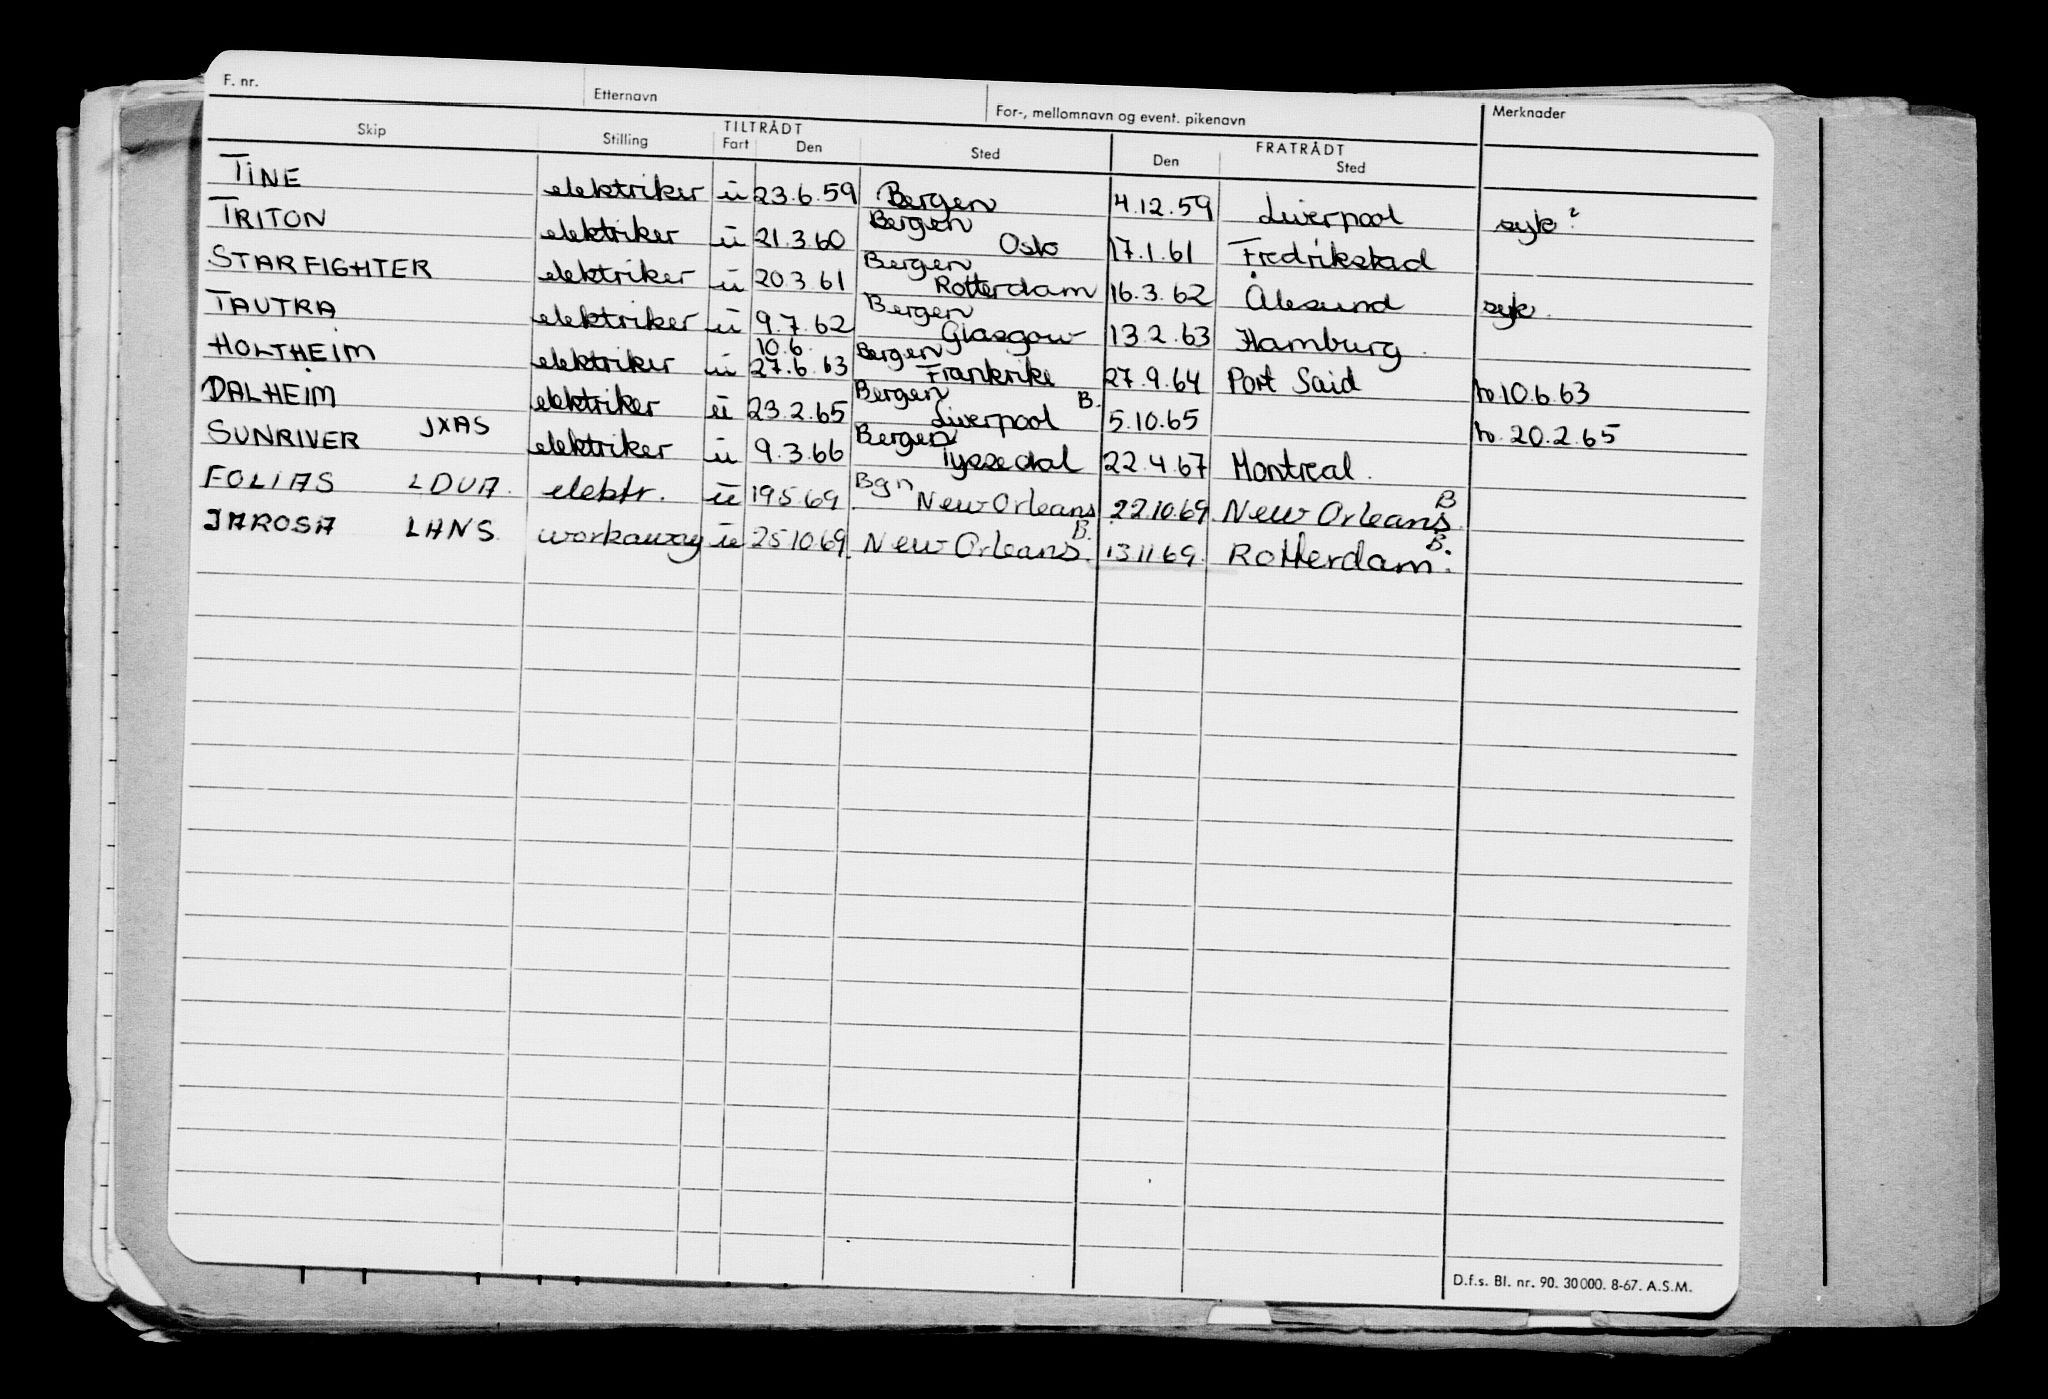 F. nr. Etternavn For-, mellomnavn og event. pikenavn Merknader
Skip Stilling TILTRÅDT Fart Den Sted FRATRÅDT Den Sted
TINE elektriker u 23.6.59 Bergen 4.12.59 Liverpool syk?
TRITON elektriker u 21.3.60 Bergen Oslo 17.1.61 Fredrikstad
STARFIGHTER elektriker u 20.3.61 Bergen Rotterdam 16.3.62 Ålesund syk.
TAUTRA elektriker u 9.7.62 Bergen Glasgow 13.2.63 Hamburg.
HOLTHEIM elektriker u 10.6. 27.6.63 Bergen Frankrike 27.9.64 Port Said h. 10.6.63
DALHEIM elektriker u 23.2.65 Bergen Liverpool B. 5.10.65 h. 20.2.65
SUNRIVER JXAS elektriker u 9.3.66 Bergen Tyssedal 22.4.67 Montreal.
FOLIAS LDUA. elektr. u 19.5.69 Bgn New Orleans 22.10.69 New Orleans B.
JAROSA LHNS. workaway u 25.10.69. New Orleans B. 13.11.69. Rotterdam B.
D.f.s. Bl. nr. 90. 30000. 8-67. A.S.M.